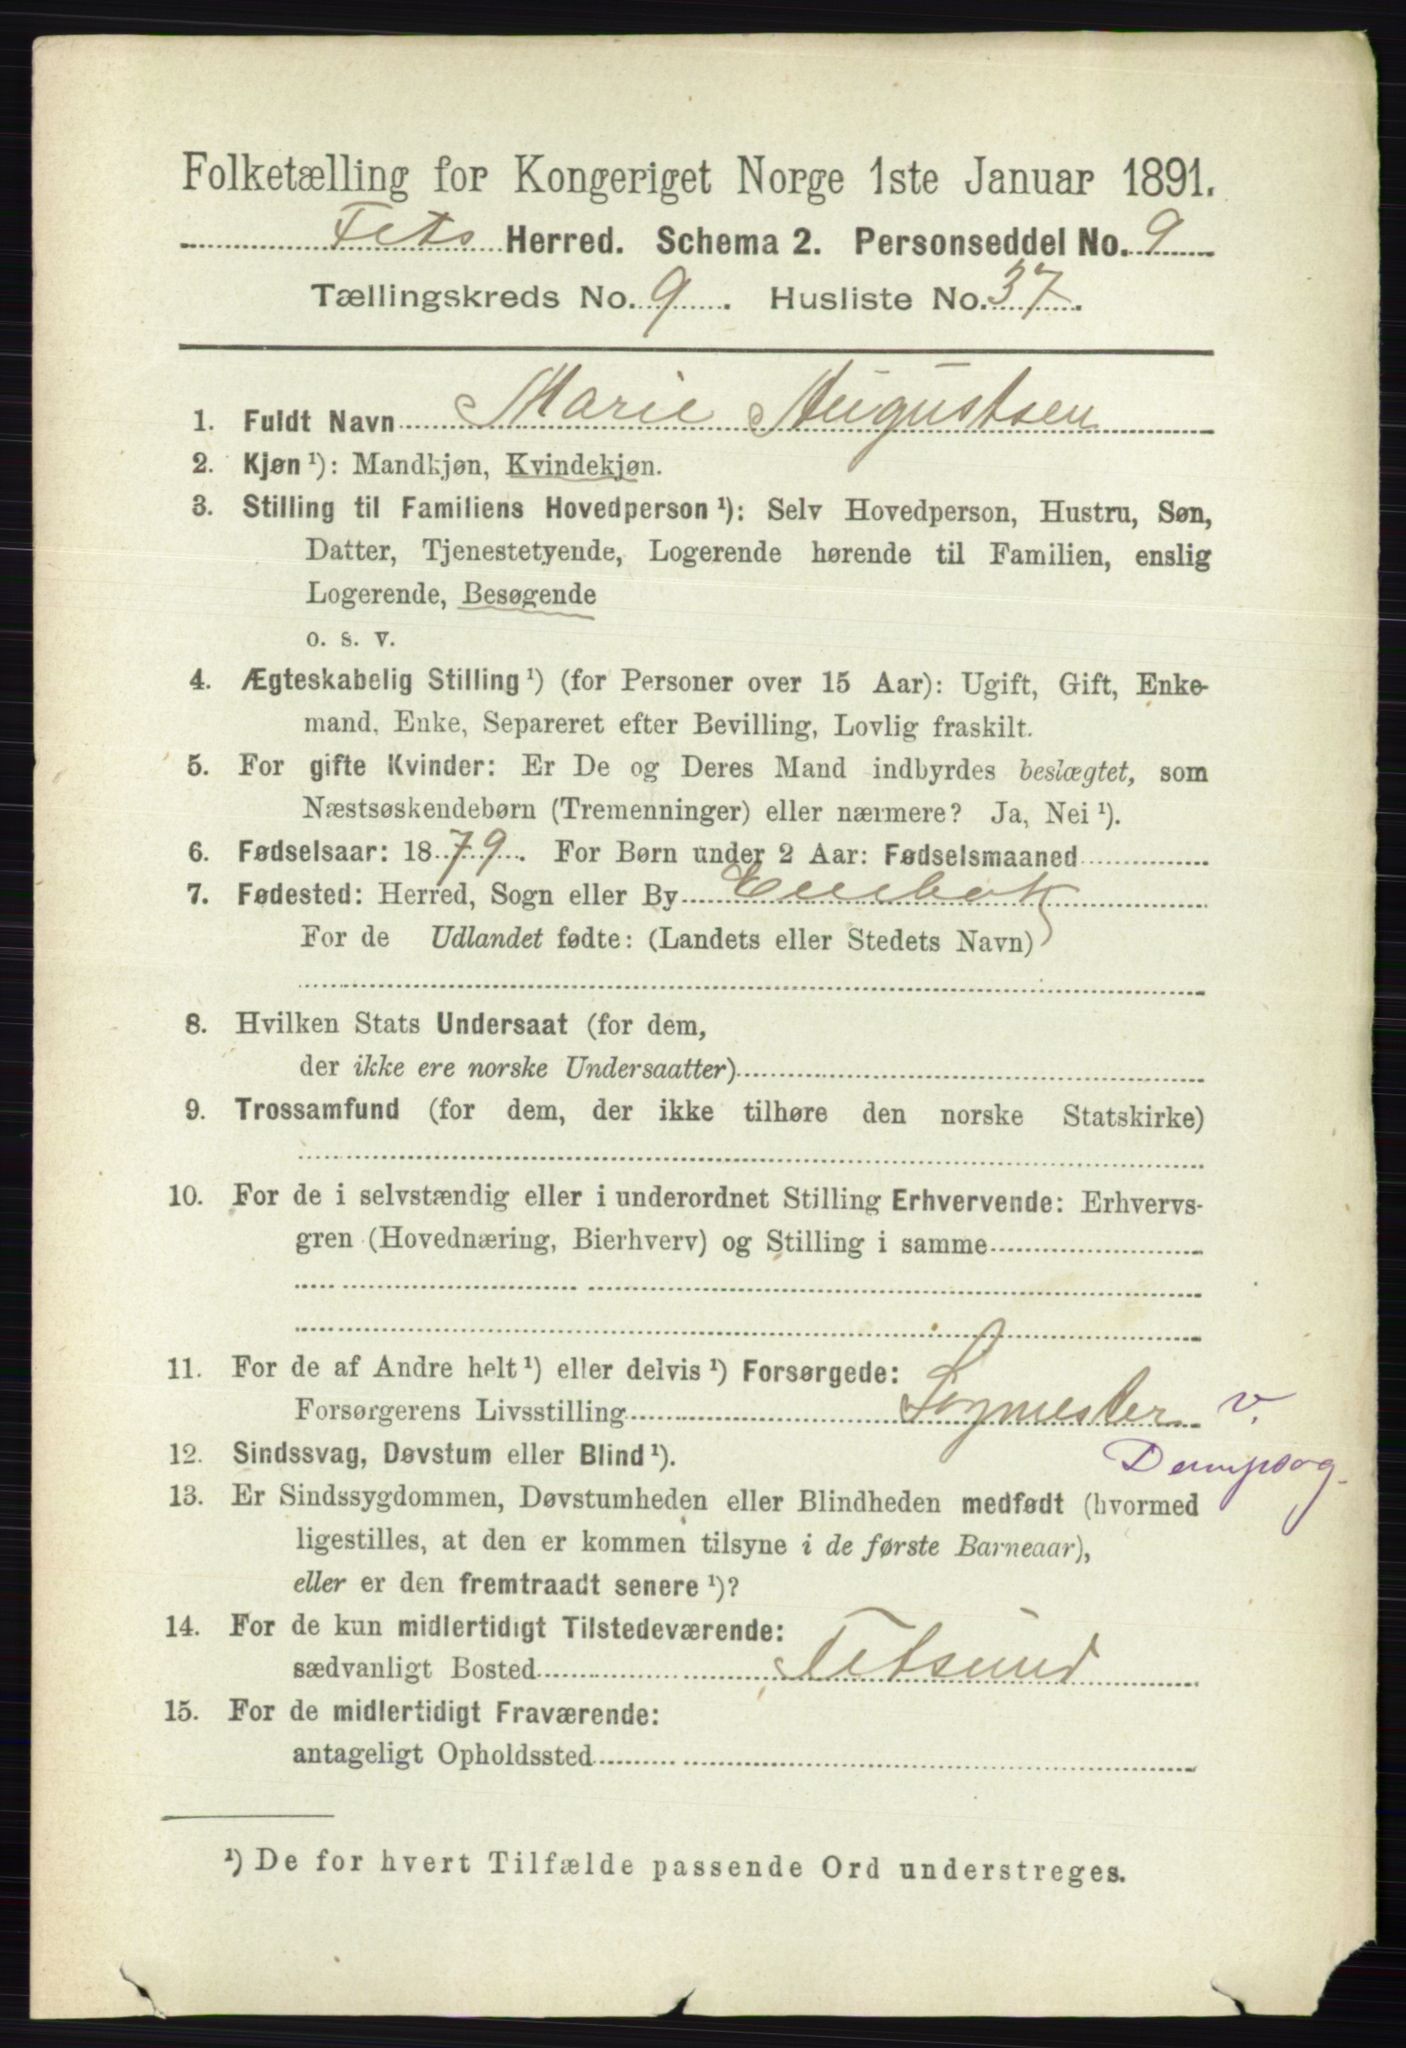 Folketælling for Kongeriget Norge 1ste Januar 1891.
Fets Herred. Schema 2. Personseddel No. 9
Tællingskreds No. 9. Husliste No. 37.
1. Fuldt Navn Marie Augustsen
2. Kjøn ¹): Mandkjøn, Kvindekjøn.
3. Stilling til Familiens Hovedperson ¹): Selv Hovedperson, Hustru, Søn,
Datter, Tjenestetyende, Logerende hørende til Familien, enslig
Logerende, Besøgende
o. s. v.
4. Ægteskabelig Stilling ¹) (for Personer over 15 Aar): Ugift, Gift, Enke-
mand, Enke, Separeret efter Bevilling, Lovlig fraskilt.
5. For gifte Kvinder: Er De og Deres Mand indbyrdes beslægtet, som
Næstsøskendebørn (Tremenninger) eller nærmere? Ja, Nei ¹).
6. Fødselsaar: 1879. For Børn under 2 Aar: Fødselsmaaned
7. Fødested: Herred, Sogn eller By Enebak
For de Udlandet fødte: (Landets eller Stedets Navn)
8. Hvilken Stats Undersaat (for dem,
der ikke ere norske Undersaatter)
9. Trossamfund (for dem, der ikke tilhøre den norske Statskirke)
10. For de i selvstændig eller i underordnet Stilling Erhvervende: Erhvervs-
gren (Hovednæring, Bierhverv) og Stilling i samme
11. For de af Andre helt ¹) eller delvis ¹) Forsørgede:
Forsørgerens Livsstilling Sagmester v.
Dampsag.
12. Sindssvag, Døvstum eller Blind ¹).
13. Er Sindssygdommen, Døvstumheden eller Blindheden medfødt (hvormed
ligestilles, at den er kommen tilsyne i de første Barneaar),
eller er den fremtraadt senere ¹)?
14. For de kun midlertidigt Tilstedeværende:
sædvanligt Bosted Fetsund
15. For de midlertidigt Fraværende:
antageligt Opholdssted
¹) De for hvert Tilfælde passende Ord understreges.